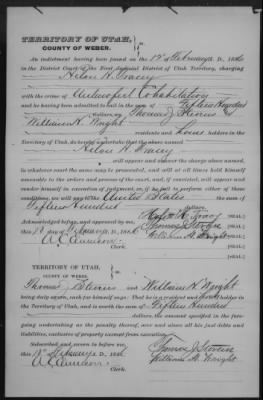 TERRITORY OF UTAH,
COUNTY OF WEBER.
An indictment having been found on the 12th February A. D., 1886
in the District Court of the First Judicial District of Utah Territory, charging
H. Tracy
with the crime of Unlawful Cohabitation
and he having been admitted to bail in the sum of Fifteen Hundred
Dollars, we Thomas J. Stevens &
William H. Wright
residents and house holders in the
Territory of Utah, do hereby undertake that the above named
H. Tracy
will appear and answer the charge above named,
in whatever court the same may be prosecuted, and will at all times hold himself
amenable to the orders and process of the court, and, if convicted, will appear and
under himself in execution of judgment, or if he fail to perform either of these
conditions, we will pay to the United States the sum of
Fifteen Hundred dollars.
Acknowledged before, and approved by me, Tracy [SEAL.]
this 12 day of February, 1886 Thomas J. Stevens [SEAL.]
William H. Wright [SEAL.]
Clerk.
TERRITORY OF UTAH,
COUNTY OF WEBER.
Thomas J. Stevens and William H. Wright
being duly sworn, each for himself says: That he is a resident and house holder in
the Territory of Utah, and is worth the sum of Fifteen Hundred
dollars, the amount specified in the fore-
going undertaking as the penalty thereof, over and above all his just debts and
liabilities, exclusive of property exempt from execution.
Subscribed and sworn to before me
this 12th February 1886 Thomas J. Stevens
William H. Wright
Clerk.